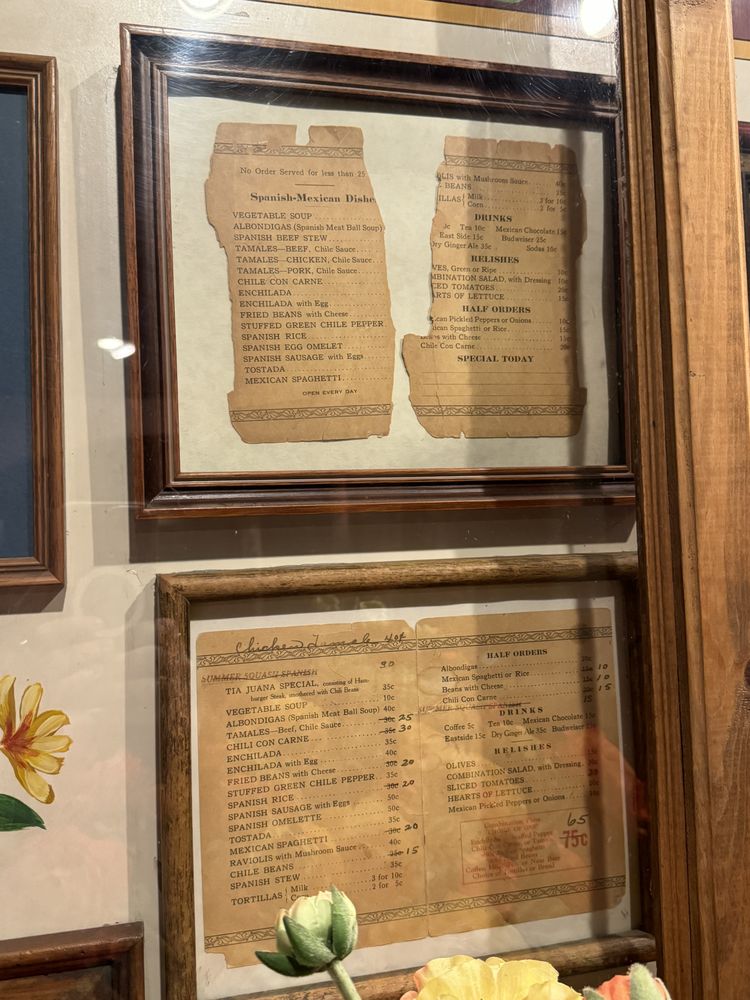 No Order Served for less than 25
Spanish-Mexican Dishe
VEGETABLE SOUP
ALBONDIGAS (Spanish Meat Ball Soup)
SPANISH BEEF STEW
TAMALES—BEEF, Chile Sauce
TAMALES—CHICKEN, Chile Sauce
TAMALES—PORK, Chile Sauce
CHILE CON CARNE
ENCHILADA
ENCHILADA with Egg
FRIED BEANS with Cheese
STUFFED GREEN CHILE PEPPER
SPANISH RICE
SPANISH EGG OMELET
SPANISH SAUSAGE with Eggs
TOSTADA
MEXICAN SPAGHETTI
OPEN EVERY DAY
OLIS with Mushroom Sauce 40c
BEANS
ILLAS { Milk 3 for 10c
Corn 2 for 5c
DRINKS
Tea 10c Mexican Chocolate 15c
East Side 15c Budweiser 25c
Dry Ginger Ale 35c Sodas 10c
RELISHES
VES, Green or Ripe 10c
MBINATION SALAD, with Dressing 10c
CED TOMATOES 20c
ARTS OF LETTUCE 15c
HALF ORDERS
ican Pickled Peppers or Onions 10c
ican Spaghetti or Rice 15c
with Cheese 15c
Chile Con Carne 20c
SPECIAL TODAY
Chicken Tamale 40¢
SUMMER SQUASH SPANISH 30
TIA JUANA SPECIAL, consisting of Ham-
burger Steak, smothered with Chili Brans 35c
VEGETABLE SOUP 10c
ALBONDIGAS (Spanish Meat Ball Soup) 40c
TAMALES—Beef, Chile Sauce 30c 25
CHILI CON CARNE 35c 30
ENCHILADA 35c
ENCHILADA with Egg 40c
FRIED BEANS with Cheese 30c 20
STUFFED GREEN CHILE PEPPER 35c
SPANISH RICE 30c 20
SPANISH SAUSAGE with Eggs 50c
SPANISH OMELETTE 50c
TOSTADA 35c
MEXICAN SPAGHETTI 30c 20
RAVIOLIS with Mushroom Sauce 40c
CHILE BEANS 25c 15
SPANISH STEW 35c
TORTILLAS { Milk 3 for 10c
2 for 5c
HALF ORDERS
Albondigas
Mexican Spaghetti or Rice 10
Beans with Cheese 10
Chili Con Carne 15
SUMMER SQUASH SPANISH 15
DRINKS
Coffee 5c Tea 10c Mexican Chocolate 15c
Eastside 15c Dry Ginger Ale 35c Budweiser
RELISHES
OLIVES
COMBINATION SALAD, with Dressing
SLICED TOMATOES
HEARTS OF LETTUCE
Mexican Pickled Peppers or Onions
Combination Plate
65
75c